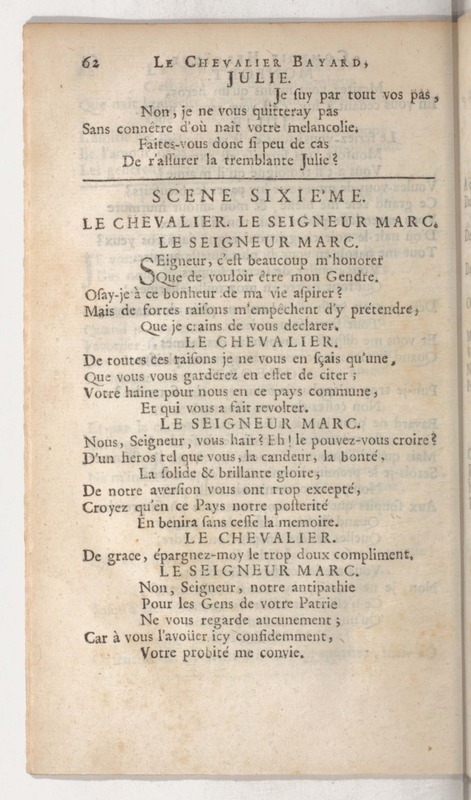 62 LE CHEVALIER BAYARD,
JULIE.
Je suy par tout vos pas,
Non, je ne vous quitteray pas
Sans connétre d'où nait votre melancolie.
Faites-vous donc si peu de cas
De r'assurer la tremblante Julie?
SCENE SIXIE'ME.
LE CHEVALIER. LE SEIGNEUR MARC.
LE SEIGNEUR MARC.
SEigneur, c'est beaucoup m'honorer
Que de vouloir être mon Gendre.
Osay-je à ce bonheur de ma vie aspirer?
Mais de fortes raisons m'empéchent d'y prétendre,
Que je crains de vous declarer.
LE CHEVALIER.
De toutes ces raisons je ne vous en sçais qu'une,
Que vous vous garderez en effet de citer;
Votre haine pour nous en ce pays commune,
Et qui vous a fait revolter.
LE SEIGNEUR MARC.
Nous, Seigneur, vous haïr? Eh! le pouvez-vous croire?
D'un heros tel que vous, la candeur, la bonté,
La solide & brillante gloire,
De notre aversion vous ont trop excepté,
Croyez qu'en ce Pays notre posterité
En benira sans cesse la memoire.
LE CHEVALIER.
De grace, épargnez-moy le trop doux compliment.
LE SEIGNEUR MARC.
Non, Seigneur, notre antipathie
Pour les Gens de votre Patrie
Ne vous regarde aucunement;
Car à vous l'avoüer icy confidemment,
Votre probité me convie.